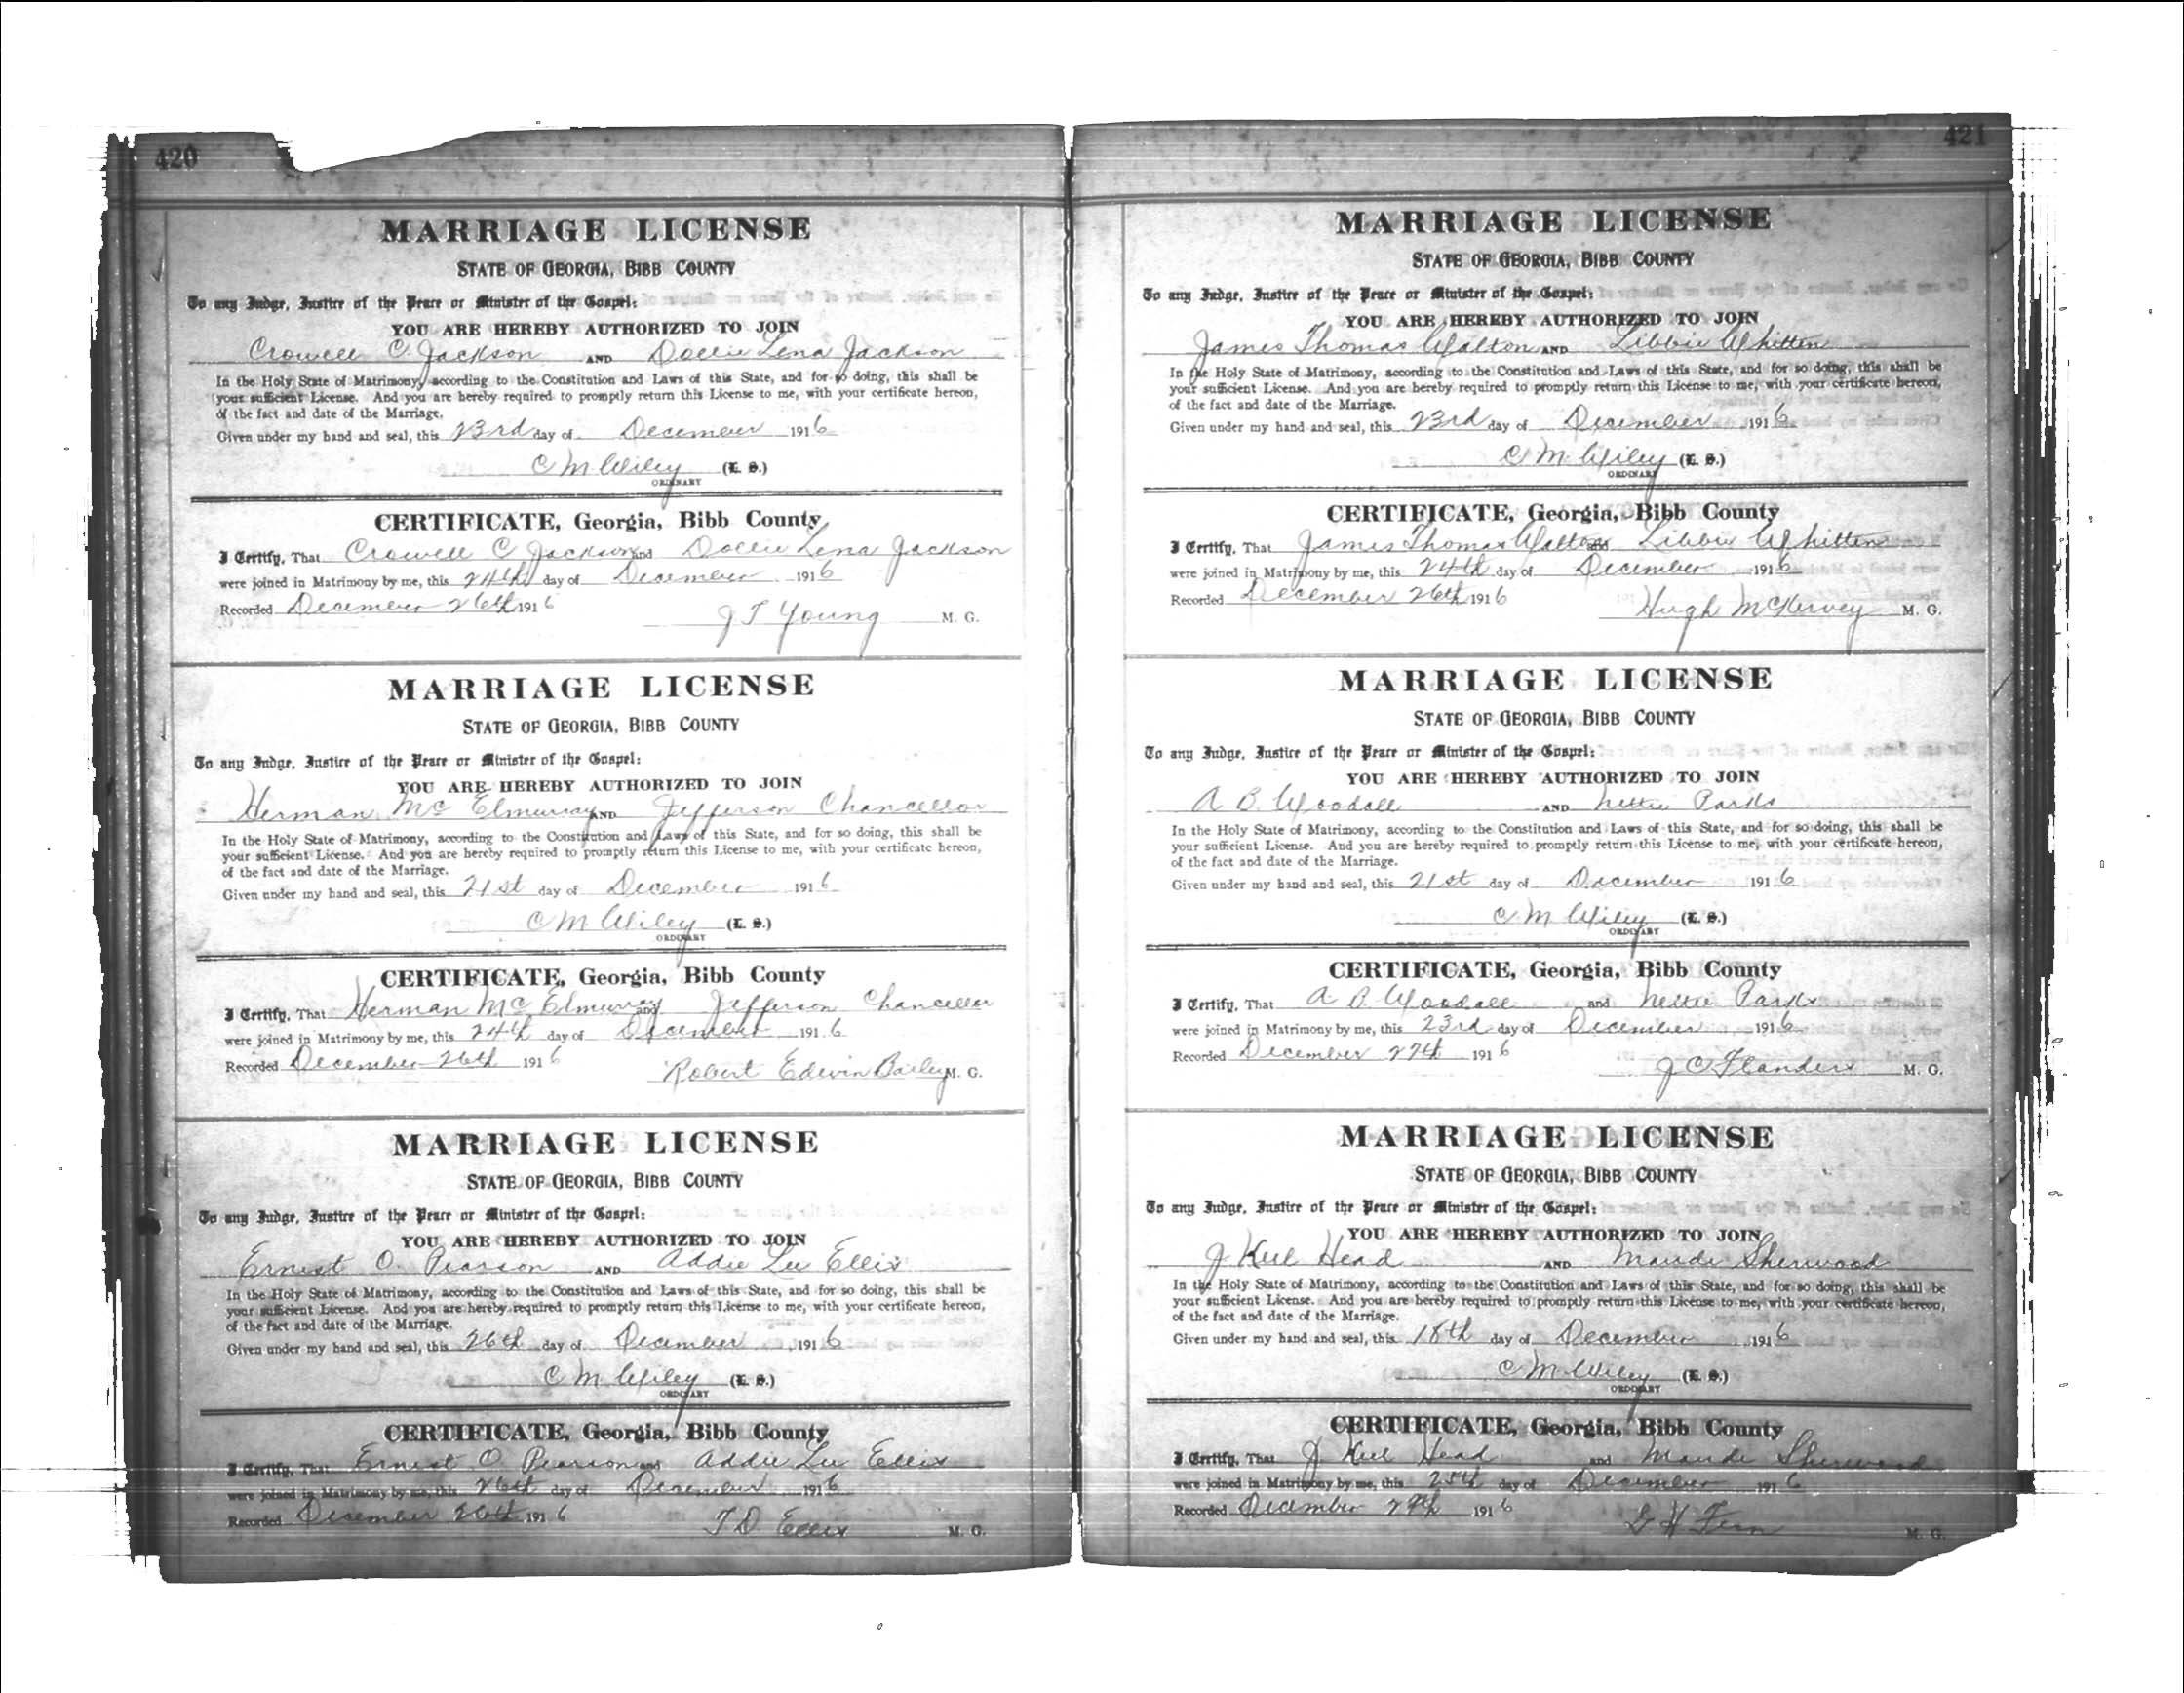 420
MARRIAGE LICENSE
STATE OF GEORGIA, BIBB COUNTY
To any Judge, Justice of the Peace or Minister of the Gospel:
YOU ARE HEREBY AUTHORIZED TO JOIN
Crowell C Jackson AND Dollie Lena Jackson
In the Holy State of Matrimony, according to the Constitution and Laws of this State, and for so doing, this shall be
your sufficient License. And you are hereby required to promptly return this License to me, with your certificate hereon,
of the fact and date of the Marriage.
Given under my hand and seal, this 23rd day of December 1916
C M Wiley (L. S.)
ORDINARY
CERTIFICATE, Georgia, Bibb County
I Certify, That Crowell C Jackson and Dollie Lena Jackson
were joined in Matrimony by me, this 24th day of December 1916
Recorded December 26th 1916
J T Young M. G.
MARRIAGE LICENSE
STATE OF GEORGIA, BIBB COUNTY
To any Judge, Justice of the Peace or Minister of the Gospel:
YOU ARE HEREBY AUTHORIZED TO JOIN
Herman Mc Elmurray AND Jefferson Chancellor
In the Holy State of Matrimony, according to the Constitution and Laws of this State, and for so doing, this shall be
your sufficient License. And you are hereby required to promptly return this License to me, with your certificate hereon,
of the fact and date of the Marriage.
Given under my hand and seal, this 21st day of December 1916
C M Wiley (L. S.)
ORDINARY
CERTIFICATE, Georgia, Bibb County
I Certify, That Herman Mc Elmurray and Jefferson Chancellor
were joined in Matrimony by me, this 24th day of December 1916
Recorded December 26th 1916
Robert Edwin Bailey M. G.
MARRIAGE LICENSE
STATE OF GEORGIA, BIBB COUNTY
To any Judge, Justice of the Peace or Minister of the Gospel:
YOU ARE HEREBY AUTHORIZED TO JOIN
Ernest O. Pearson AND Addie Lee Ellis
In the Holy State of Matrimony, according to the Constitution and Laws of this State, and for so doing, this shall be
your sufficient License. And you are hereby required to promptly return this License to me, with your certificate hereon,
of the fact and date of the Marriage.
Given under my hand and seal, this 26th day of December 1916
C M Wiley (L. S.)
ORDINARY
CERTIFICATE, Georgia, Bibb County
I Certify, That Ernest O Pearson and Addie Lee Ellis
were joined in Matrimony by me, this 26th day of December 1916
Recorded December 26th 1916
T D Ellis M. G.
421
MARRIAGE LICENSE
STATE OF GEORGIA, BIBB COUNTY
To any Judge, Justice of the Peace or Minister of the Gospel:
YOU ARE HEREBY AUTHORIZED TO JOIN
James Thomas Walton AND Libbie Whitten
In the Holy State of Matrimony, according to the Constitution and Laws of this State, and for so doing, this shall be
your sufficient License. And you are hereby required to promptly return this License to me, with your certificate hereon,
of the fact and date of the Marriage.
Given under my hand and seal, this 23rd day of December 1916
C M Wiley (L. S.)
ORDINARY
CERTIFICATE, Georgia, Bibb County
I Certify, That James Thomas Walton and Libbie Whitten
were joined in Matrimony by me, this 24th day of December 1916
Recorded December 26th 1916
Hugh McKervey M. G.
MARRIAGE LICENSE
STATE OF GEORGIA, BIBB COUNTY
To any Judge, Justice of the Peace or Minister of the Gospel:
YOU ARE HEREBY AUTHORIZED TO JOIN
A B Woodall AND Nettie Parks
In the Holy State of Matrimony, according to the Constitution and Laws of this State, and for so doing, this shall be
your sufficient License. And you are hereby required to promptly return this License to me, with your certificate hereon,
of the fact and date of the Marriage.
Given under my hand and seal, this 21st day of December 1916
C M Wiley (L. S.)
ORDINARY
CERTIFICATE, Georgia, Bibb County
I Certify, That A B Woodall and Nettie Parks
were joined in Matrimony by me, this 23rd day of December 1916
Recorded December 27th 1916
J C Flanders M. G.
MARRIAGE LICENSE
STATE OF GEORGIA, BIBB COUNTY
To any Judge, Justice of the Peace or Minister of the Gospel:
YOU ARE HEREBY AUTHORIZED TO JOIN
J Keel Head AND Maude Sherwood
In the Holy State of Matrimony, according to the Constitution and Laws of this State, and for so doing, this shall be
your sufficient License. And you are hereby required to promptly return this License to me, with your certificate hereon,
of the fact and date of the Marriage.
Given under my hand and seal, this 18th day of December 1916
C M Wiley (L. S.)
ORDINARY
CERTIFICATE, Georgia, Bibb County
I Certify, That J Keel Head and Maude Sherwood
were joined in Matrimony by me, this day of December 1916
Recorded December 1916
M. G.